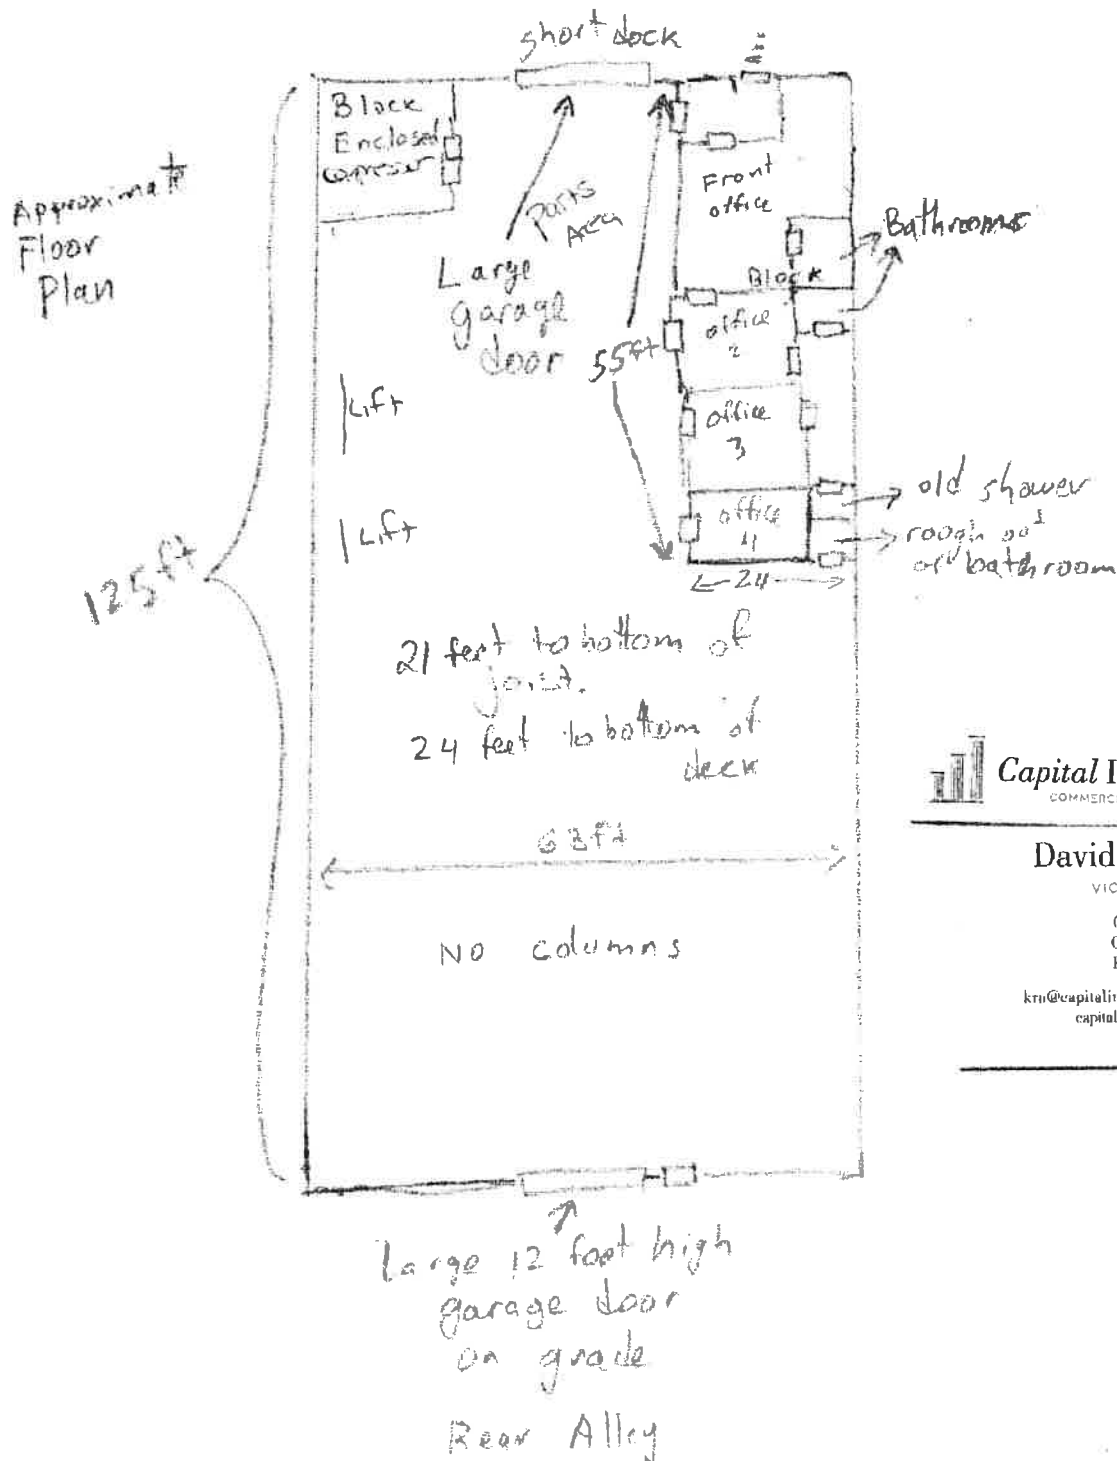 short dock
Approximate
Floor
Plan
Block
Enclosed
Parts
Area
Large
garage
door
55ft
Front
office
Bathrooms
Block
office
2
office
3
office
4
24
old shower
rough out
of bathroom
Lift
Lift
125ft
21 feet to bottom of
joist.
24 feet to bottom of
deck
63ft
No columns
Capital
COMMERC
David
VIC
Large 12 foot high
garage door
on grade
Rear Alley